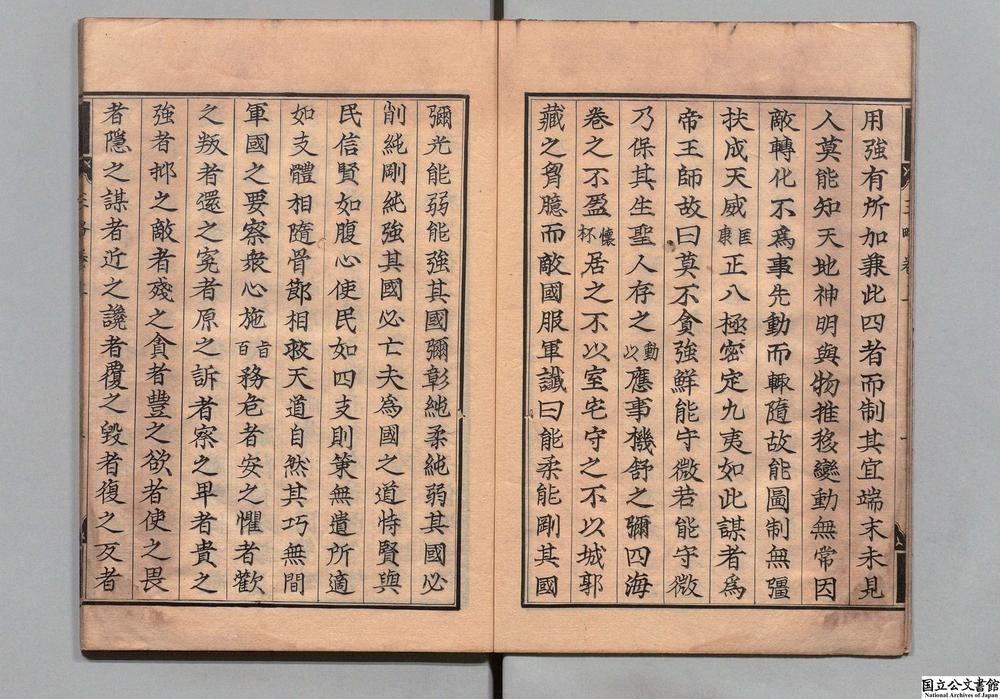 用強有所加兼此四者而制其宜端末未見
人莫能知天地神明與物推移變動無常因
敵轉化不爲事先動而輒隨故能圖制無彊
扶成天威匡康正八極密定九夷如此謀者爲
帝王師故曰莫不貪強鮮能守微若能守微
乃保其生聖人存之動以應事機舒之彌四海
卷之不盈懷杯居之不以室宅守之不以城郭
藏之胷臆而敵國服軍讖曰能柔能剛其國
彌光能弱能強其國彌彰純柔純弱其國必
削純剛純強其國必亡夫爲國之道恃賢與
民信賢如腹心使民如四支則策無遺所適
如支體相隨骨節相救天道自然其巧無間
軍國之要察衆心施百旨務危者安之懼者歡
之叛者還之寃者原之訴者察之卑者貴之
強者抑之敵者殘之貪者豐之欲者使之畏
者隱之謀者近之讒者覆之毀者復之反者
三略卷上
国立公文書館
National Archives of Japan